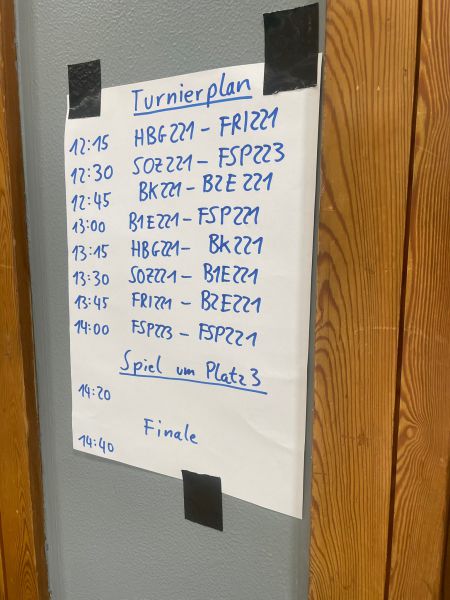 Turnierplan
12:15 HBG221 - FRI221
12:30 SOZ221 - FSP223
12:45 BK221 - B2E221
13:00 B1E221 - FSP221
13:15 HBG221 - BK221
13:30 SOZ221 - B1E221
13:45 FRI221 - B2E221
14:00 FSP223 - FSP221
Spiel um Platz 3
14:20
Finale
14:40